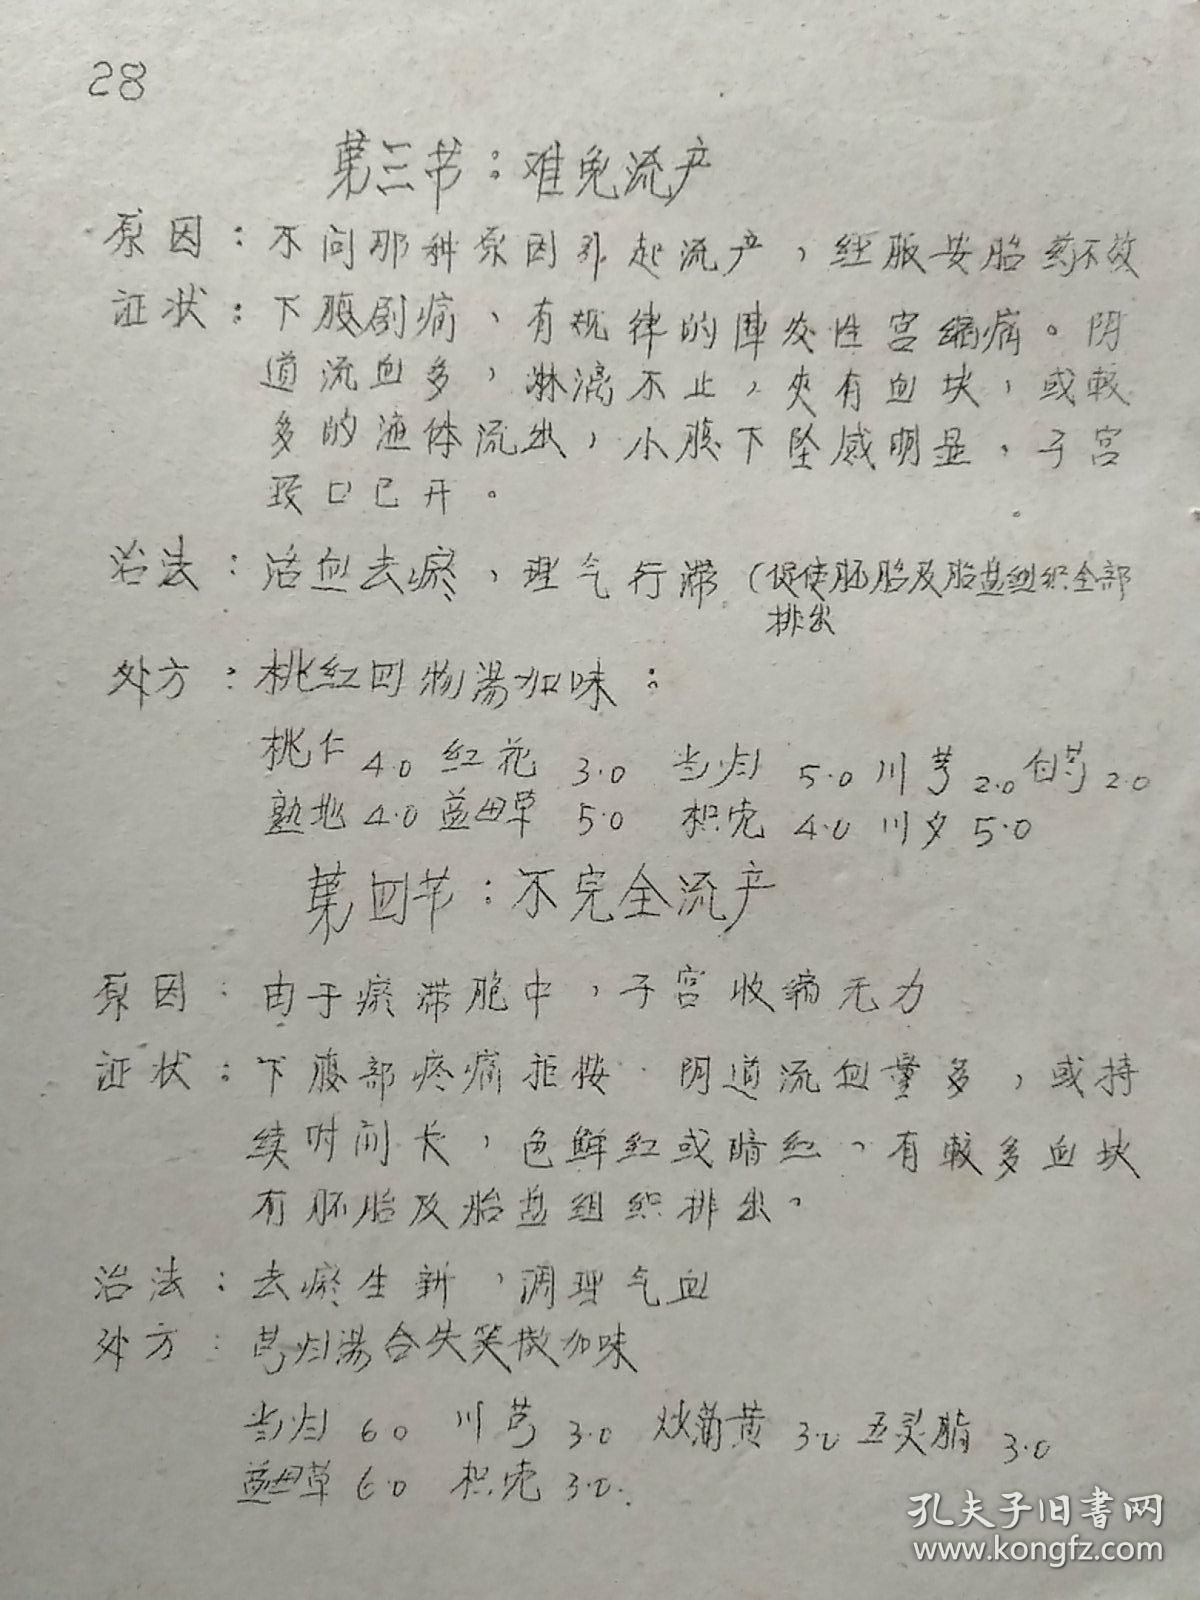 28
第三节：难免流产
原因：不问那种原因引起流产，经服安胎药不效
证状：下腹剧痛，有规律的阵发性宫缩痛。阴
道流血多，淋漓不止，夹有血块，或较
多的液体流出，小腹下坠感明显，子宫
颈口已开。
治法：活血去瘀，理气行滞（促使胚胎及胎盘组织全部
排出
处方：桃红四物汤加味：
桃仁4.0 红花3.0 当归5.0 川芎2.0 白芍2.0
熟地4.0 益母草5.0 枳壳4.0 川夕5.0
第四节：不完全流产
原因：由于瘀滞胞中，子宫收缩无力
证状：下腹部疼痛拒按 阴道流血量多，或持
续时间长，色鲜红或暗红，有较多血块
有胚胎及胎盘组织排出。
治法：去瘀生新，调理气血
处方：芎归汤合失笑散加味
当归6.0 川芎3.0 炊蒲黄3.0 五灵脂3.0
益母草6.0 枳壳3.0.
孔夫子旧书网
www.kongfz.com